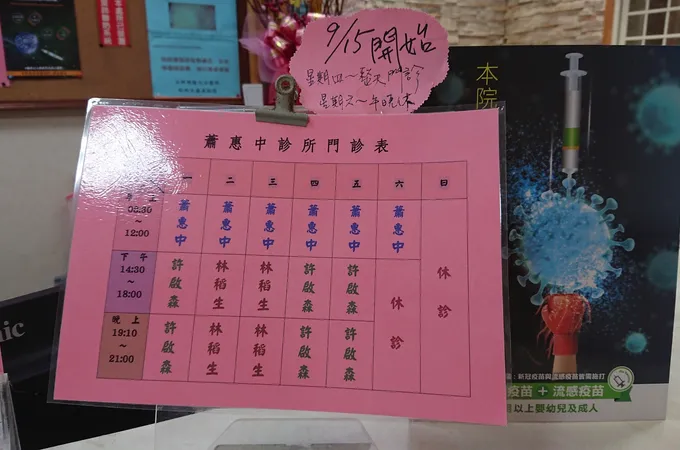 9/15開始
星期四～整天門診
星期六～午晚休
蕭惠中診所門診表
一 二 三 四 五 六 日
08:30
～
12:00
蕭惠中 蕭惠中 蕭惠中 蕭惠中 蕭惠中 蕭惠中
下午
14:30
～
18:00
許啟森 林稻生 林稻生 許啟森 許啟森 休診 休診
晚上
19:10
～
21:00
許啟森 林稻生 林稻生 許啟森 許啟森
本院
新冠疫苗與流感疫苗皆開施打
疫苗+流感疫苗
以上嬰幼兒及成人
nic